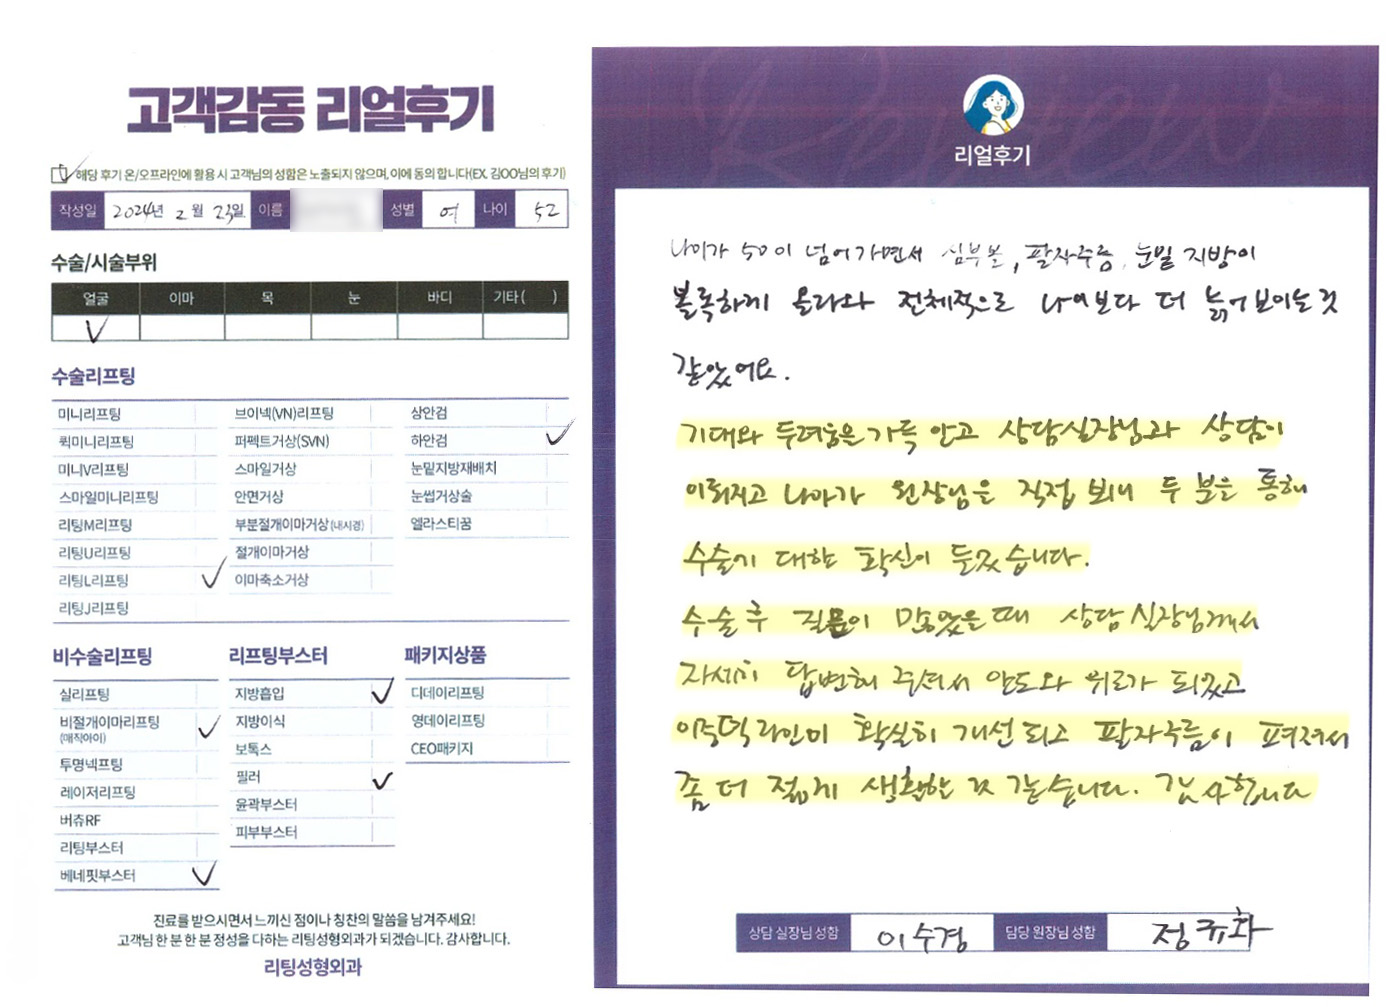 고객감동 리얼후기
해당 후기 온/오프라인에 활용 시 고객님의 성함은 노출되지 않으며, 이에 동의 합니다(EX. 김OO님의 후기)
작성일 2024년 2월 23일 이름 성별 여 나이 52
수술/시술부위
얼굴 이마 목 눈 바디 기타 ( )
수술리프팅
미니리프팅 브이넥(VN)리프팅 상안검
퀵미니리프팅 퍼펙트거상(SVN) 하안검
미니V리프팅 스마일거상 눈밑지방재배치
스마일미니리프팅 안면거상 눈썹거상술
리팅M리프팅 부분절개이마거상(내시경) 엘라스티꿈
리팅U리프팅 절개이마거상
리팅L리프팅 이마축소거상
리팅J리프팅
비수술리프팅 리프팅부스터 패키지상품
실리프팅 지방흡입 디데이리프팅
비절개이마리프팅 지방이식 영데이리프팅
(매직아이)
보톡스 CEO패키지
투명넥프팅 필러
레이저리프팅 윤곽부스터
버츄RF 피부부스터
리팅부스터
베네핏부스터
진료를 받으시면서 느끼신 점이나 칭찬의 말씀을 남겨주세요!
고객님 한 분 한 분 정성을 다하는 리팅성형외과가 되겠습니다. 감사합니다.
리팅성형외과
리얼후기
나이가 50이 넘어가면서 심부볼, 팔자주름, 눈밑 지방이
볼록하게 올라와 전체적으로 나이보다 더 늙어보이는 것
같았어요.
기대와 두려움은 가득 안고 상담실장님과 상담이
이뤄지고 나아가 원장님을 직접 뵈니 두 분을 통해
수술에 대한 확신이 들었습니다.
수술 후 질문이 많았을 때 상담 실장님께서
자세히 답변해 주셔서 안도와 위로가 되었고
이중턱 라인이 확실히 개선되고 팔자주름이 펴져서
좀 더 젊게 생활할 것 같습니다. 감사합니다
상담 실장님 성함 이수경 담당 원장님 성함 정규화